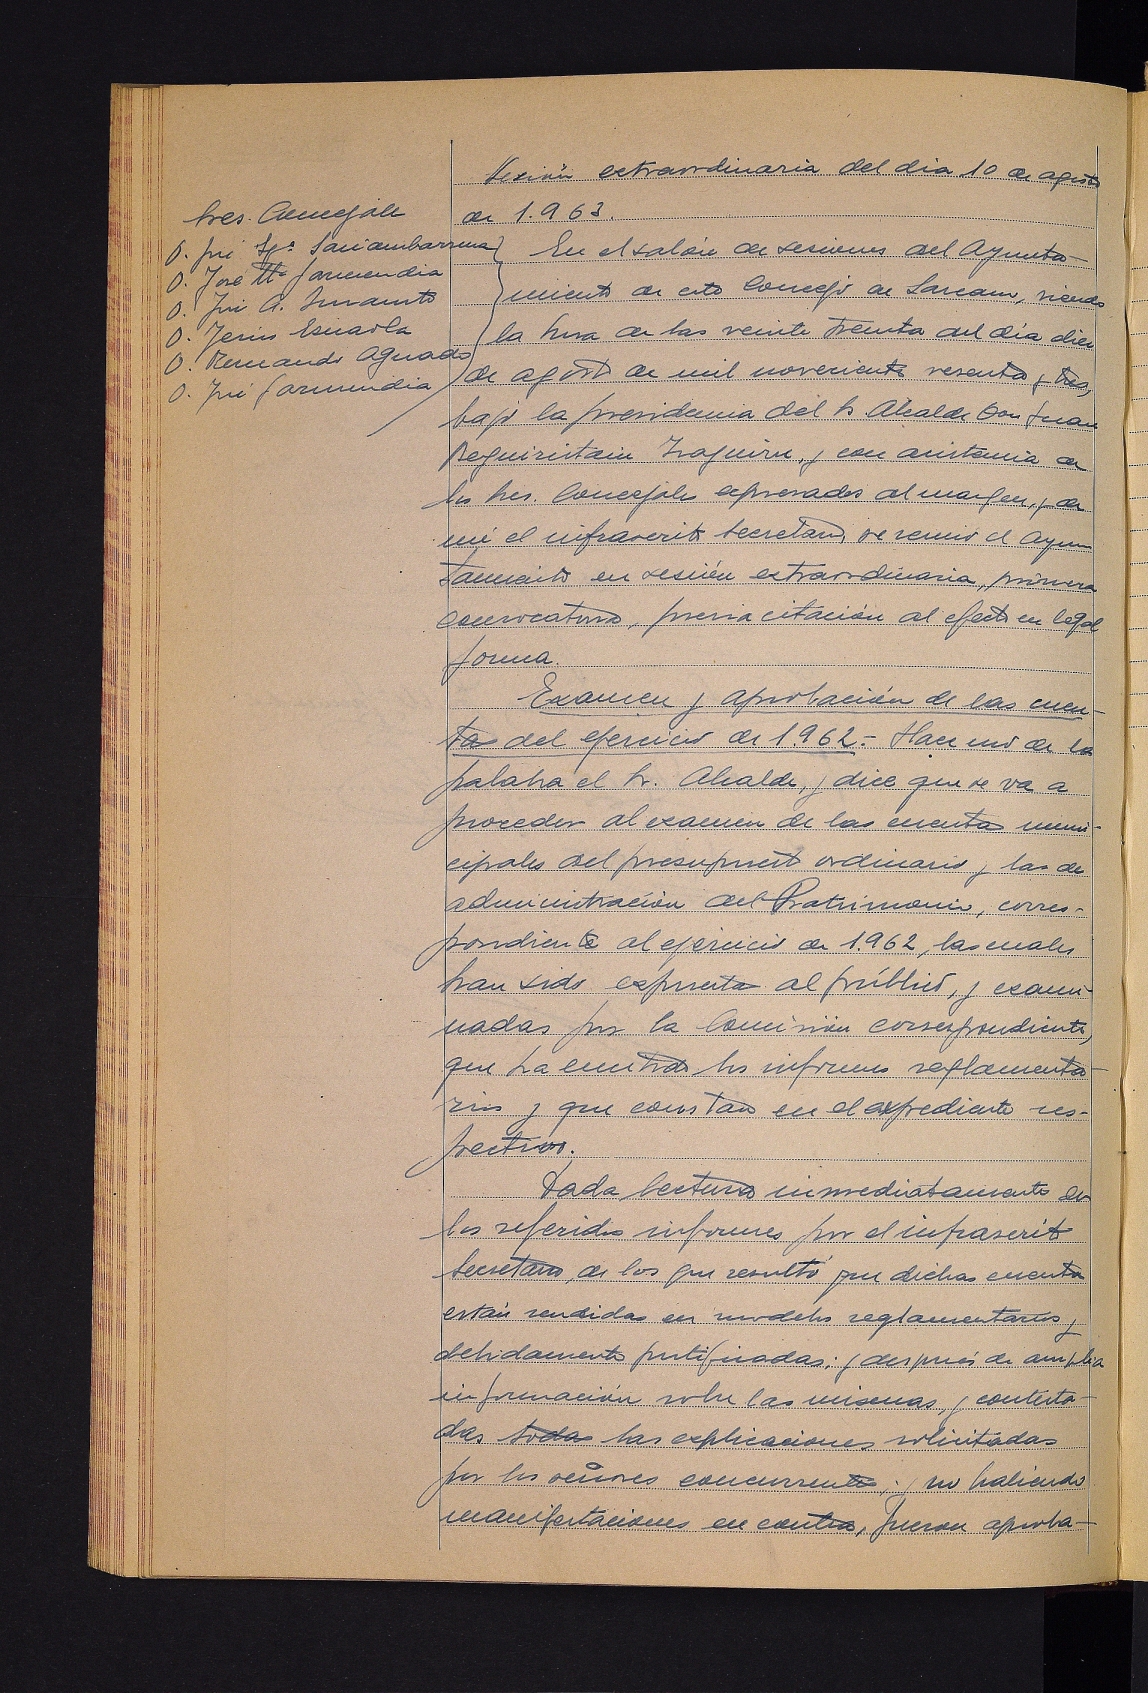 Sesión extraordinaria del dia 10 de agosto
de 1.963.
Sres. Concejales
D. José Igº Sariambarrena
D. José Mª Garmendia
D. José A.
D. Jesús Esnaola
D. Fernando Aguado
D. José Garmendia
En el salón de sesiones del Ayunta-
miento de este Concejo de Larcaun, siendo
la hora de las veinte treinta del día diez
de agosto de mil novecientos sesenta y tres,
bajo la presidencia del Sr. Alcalde Don Juan
Reguiristain Izaguirre, y con asistencia de
los Sres. Concejales expresados al margen, y de
mí el infrascrito Secretario se reunió el Ayun
tamiento en sesión extraordinaria, primera
convocatoria, previa citación al efecto en legal
forma.
Examen y aprobación de las cuen-
tas del ejercicio de 1.962.- Hace uso de la
palabra el Sr. Alcalde, y dice que se va a
proceder al examen de las cuentas muni-
cipales del presupuesto ordinario y las de
administración del Patrimonio, corres-
pondiente al ejercicio de 1.962, las cuales
han sido expuestas al público, y exami-
nadas por la Comisión correspondiente,
que ha emitido los informes reglamenta-
rios y que constan en el expediente res-
pectivo.
Dada lectura inmediatamente de
los referidos informes por el infrascrito
Secretario, de los que resultó que dichas cuentas
están rendidas en modelos reglamentarios y
debidamente justificadas; y después de amplia
información sobre las mismas, y contesta-
das todas las explicaciones solicitadas
por los señores concurrentes, y no habiendo
manifestaciones en contra, fueron aproba-